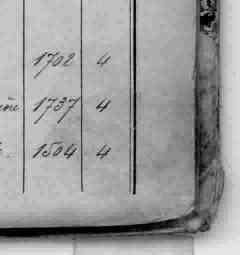 1702 4
1737 4
1504 4